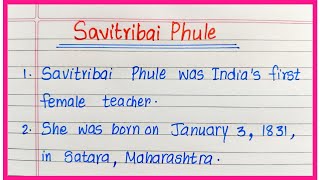 Savitribai Phule
1. Savitribai Phule was India's first
female teacher.
2. She was born on January 3, 1831,
in Satara, Maharashtra.